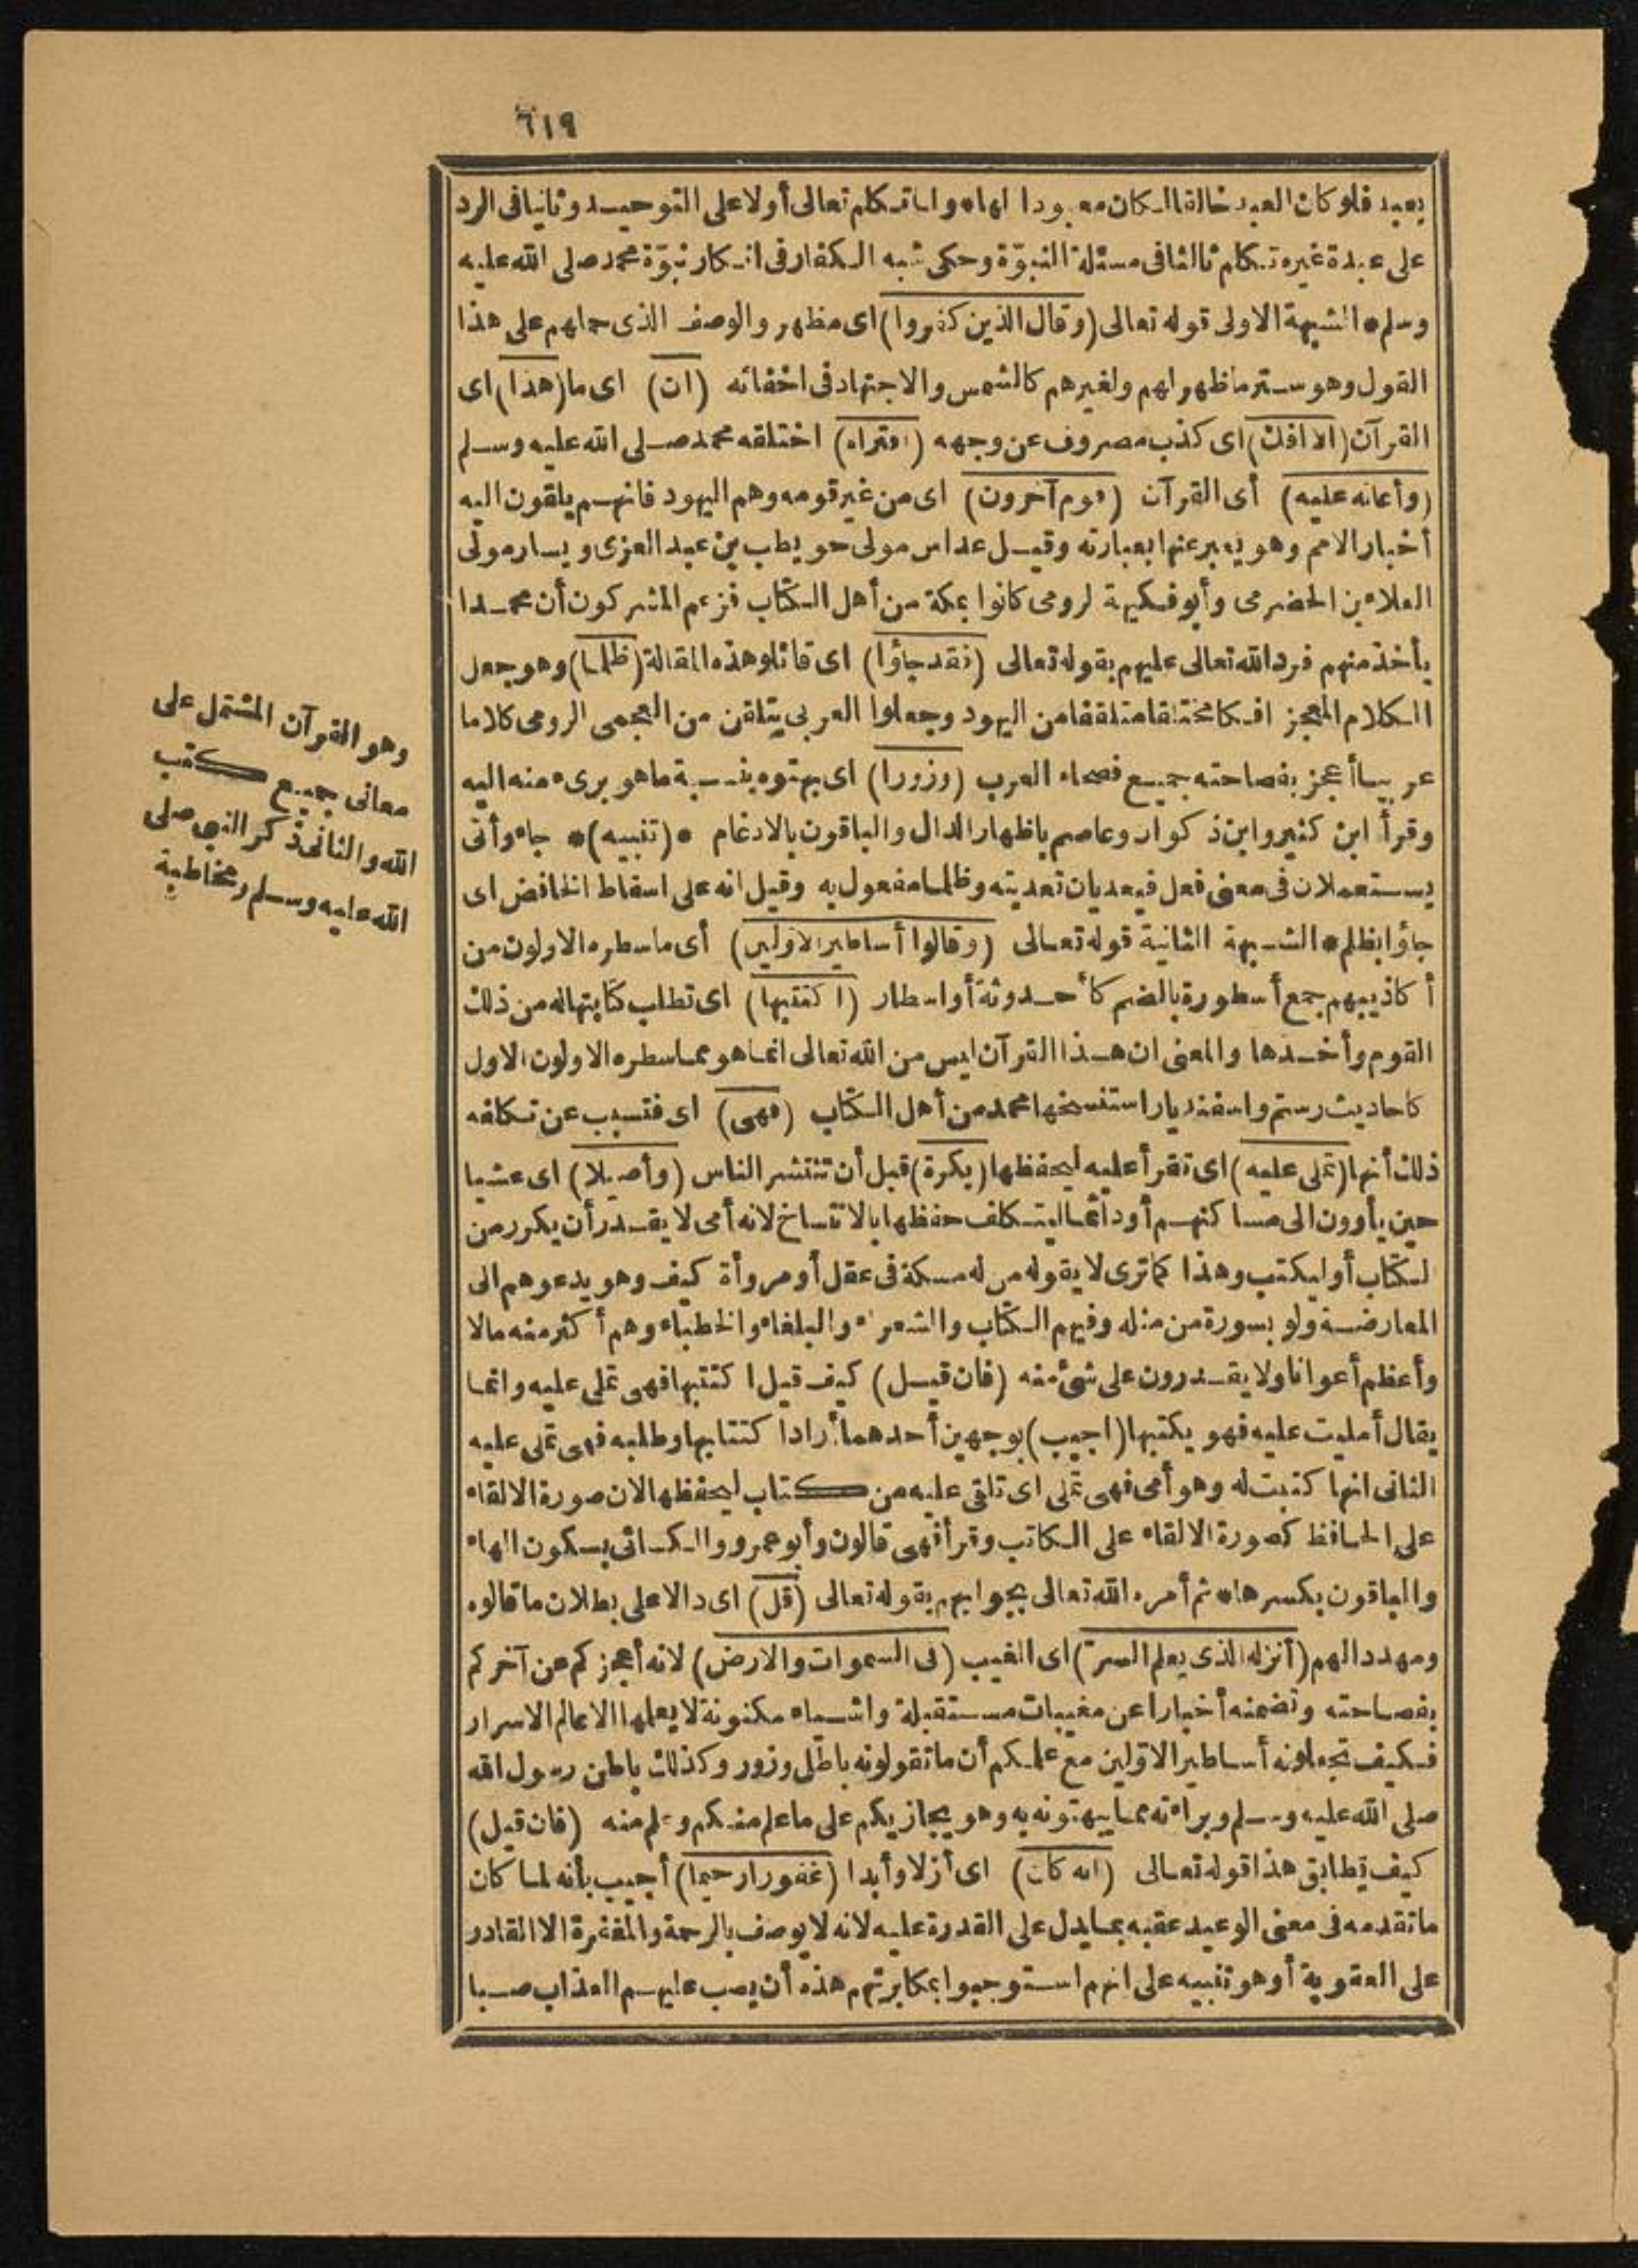 ٦١٩
يعبد فلو كان العبد خالقا لكان معبودا الها * ولما تكلم تعالى أولا على التوحيد وثانيا فى الرد
على عبدة غيره تكلم ثالثا فى مسئلة النبوّة وحكى شبه الكفار فى انكار نبوّة محمد صلى الله عليه
وسلم * الشبهة الاولى قوله تعالى (وقال الذين كفروا) اى مظهر والوصف الذى حملهم على هذا
القول وهو ستر ما ظهر لهم ولغيرهم كالشمس والاجتهاد فى اخفائه (ان) اى ما (هذا) اى
القرآن (الا افك) اى كذب مصروف عن وجهه (افتراه) اختلقه محمد صلى الله عليه وسلم
(وأعانه عليه) أى القرآن (قوم آخرون) اى من غير قومه وهم اليهود فانهم يلقون اليه
أخبار الامم وهو يعبر عنها بعبارته وقيل عداس مولى حويطب بن عبد العزى ويسار مولى
العلاء بن الحضرمى وأبو فكيهة الرومى كانوا بمكة من أهل الكتاب فزعم المشركون أن محمدا
يأخذ منهم فرد الله تعالى عليهم بقوله تعالى (فقد جاؤا) اى قائلو هذه المقالة (ظلما) وهو جعل
الكلام المعجز افكا مختلقا متلقفا من اليهود وجعلوا العربى يتلقن من العجمى الرومى كلاما
عربيا أعجز بفصاحته جميع فصحاء العرب (وزورا) اى بهتوه بنسبة ما هو برىء منه اليه
وقرأ ابن كثير وابن ذكوان وعاصم باظهار الدال والباقون بالادغام * (تنبيه) * جاء وأتى
يستعملان فى معنى فعل فيعديان تعديته وظلما مفعول به وقيل انه على اسقاط الخافض اى
جاؤا بظلم * الشبهة الثانية قوله تعالى (وقالوا أساطير الاولين) أى ما سطره الاولون من
أكاذيبهم جمع أسطورة بالضم كأحدوثة أو اسطار (اكتتبها) اى تطلب كتابتها له من ذلك
القوم وأخذها والمعنى ان هذا القرآن ليس من الله تعالى انما هو مما سطره الاولون الاول
كاحاديث رستم واسفنديار استنسخها محمد من أهل الكتاب (فهى) اى فتسبب عن تكلفه
ذلك أنها (تملى عليه) اى تقرأ عليه ليحفظها (بكرة) قبل أن تنتشر الناس (وأصيلا) اى عشيا
حين يأوون الى مساكنهم أو دائما ليتكلف حفظها بالانتساخ لانه أمى لا يقدر أن يكرر من
لكتاب أو ليكتب وهذا كما ترى لا يقوله من له مسكة فى عقل أو مروأة كيف وهو يدعوهم الى
المعارضة ولو بسورة من مثله وفيهم الكتاب والشعراء والبلغاء والخطباء وهم أكثر منه مالا
وأعظم أعوانا ولا يقدرون على شئ منه (فان قيل) كيف قيل اكتتبها فهى تملى عليه وانما
يقال أمليت عليه فهو يكتبها (اجيب) بوجهين أحدهما أراد اكتتابها وطلبه فهى تملى عليه
الثانى انها كتبت له وهو أمى فهى تملى اى تلقى عليه من كتاب ليحفظها لان صورة الالقاء
على الحافظ كصورة الالقاء على الكاتب وقرأ فهى قالون وأبو عمرو والكسائى بسكون الهاء
والباقون بكسرها * ثم أمره الله تعالى بجوابهم بقوله تعالى (قل) اى دالا على بطلان ما قالوه
ومهددا لهم (أنزله الذى يعلم السرّ) اى الغيب (فى السموات والارض) لانه أعجزكم عن آخركم
بفصاحته وتضمنه أخبارا عن مغيبات مستقبلة واشياء مكنونة لا يعلمها الا عالم الاسرار
فكيف تجعلونه أساطير الاوّلين مع علمكم أن ما تقولونه باطل وزور وكذلك باطن رسول الله
صلى الله عليه وسلم وبراءته مما يبهتونه به وهو يجازيكم على ما علم منكم وعلم منه (فان قيل)
كيف يطابق هذا قوله تعالى (انه كان) اى أزلا وأبدا (غفورا رحيما) أجيب بأنه لما كان
ما تقدمه فى معنى الوعيد عقبه بما يدل على القدرة عليه لانه لا يوصف بالرحمة والمغفرة الا القادر
على العقوبة أو هو تنبيه على انهم استوجبوا بمكابرتهم هذه أن يصب عليهم العذاب صبا
وهو القرآن المشتمل على
معانى جميع كتب
الله والثانى ذكر النبى صلى
الله عليه وسلم ومخاطبة